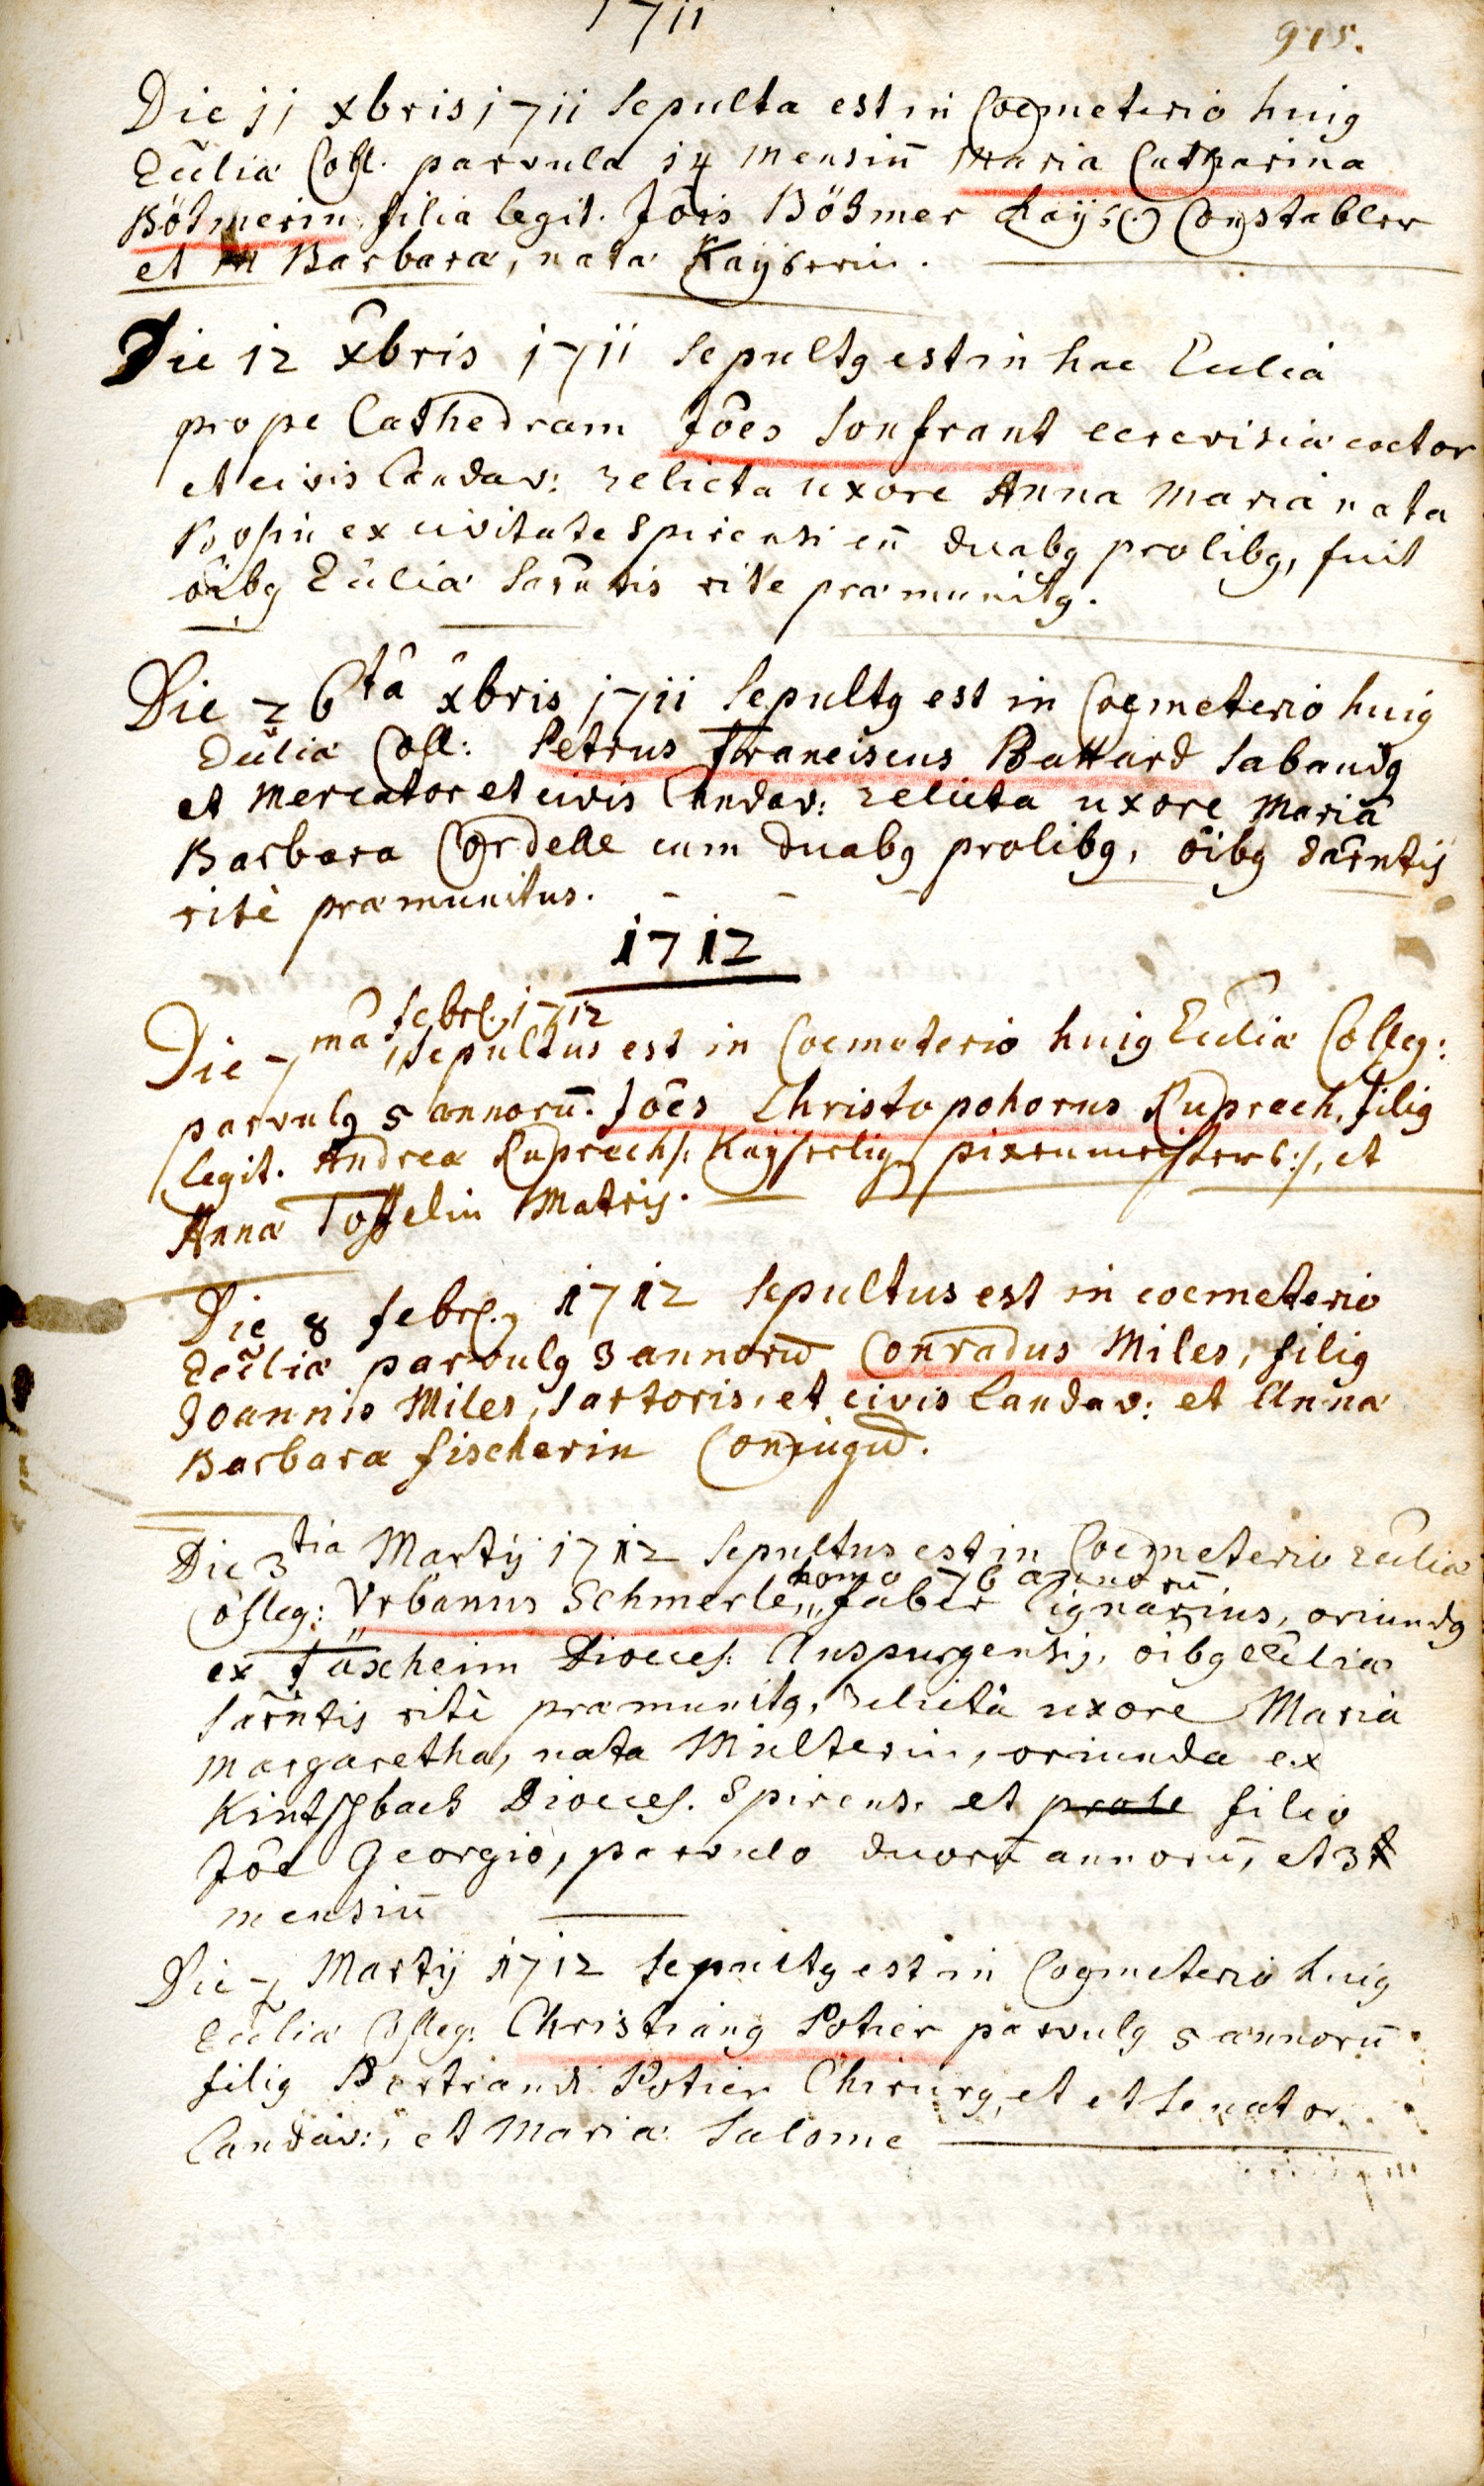 1711
915.
Die 11 xbris 1711 sepulta est in Coemeterio huig
Eccliæ Coll. parvula 14 mensiū Maria Catharina
Böhmerin filia legit. Jois Böhmer Kaÿs(.) Constabler
et Barbaræ, nata Kaÿserin.
Die 12 x̂bris 1711 sepultg est in hac Ecclia
prope Cathedram Jôes Sonfrant cerevisiæ coctor
et civis Landav: relicta uxore Anna Maria nata
ex civitate Spirensi cū duabg prolibg, fuit
oîbg Eccliæ Sacrntis rite præmunitg.
Die 26tâ x̂bris 1711 Sepultg est in Coemeterio huig
Eccliæ Coll: Petrus Franciscus Battard Sabaudg
et Mercator et civis Landav: relicta uxore Mariâ
Barbara Cordelle cum duabg prolibg, oîbg sacrntis
ritè præmunitus.
1712
febrl. 1712
Die 7mâ, sepultus est in Coemeterio huig Eccliæ Colleg:
parvulg 5 annorū. Jôes Christopohorus Ruprech, filig
legit. Andreæ Ruprech /: Kaÿserlig. pixenmeisters :/, et
Anna Toffelin Matris.
Die 8 febrl. 1712 Sepultus est in coemeterio
Eccliæ parvulg 3 annorū Conradus Miles, filig
Joannis Miles, Sartoris, et civis Landav: et Anna
Barbaræ fischerin Conjugū.
Die 3tia Martÿ 1712 Sepultus est in Coemeterio Eccliæ
homo 76 annorū
Colleg: Vrbanus Schmerle,,, faber lignarius, oriundg
ex Dioeces: Auspurgensis, oîbg Eccliæ
sacrntis ritè præmunitg, relictâ uxore Mariâ
Margaretha, nata Mülterin, oriunda ex
Kintschbach Dioeces. Spirens. et prole filio
Jôe Georgio, parvulo duorū annorū, et 3
mensiū
Die 7 Martÿ 1712 Sepultg est in Coemeterio huig
Eccliæ Colleg: Christiang Potier parvulg 5 annorū
filig Bertrandi Potier Chirurg, et et Senator.
Landav:, et Mariæ Salome